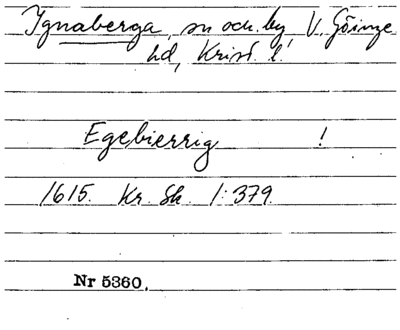 Ignaberga, sn och by, V. Göinge
hd, Krist. l.
Egebierrig !
1615. Kr. Sk. 1:379.
Nr 5360.